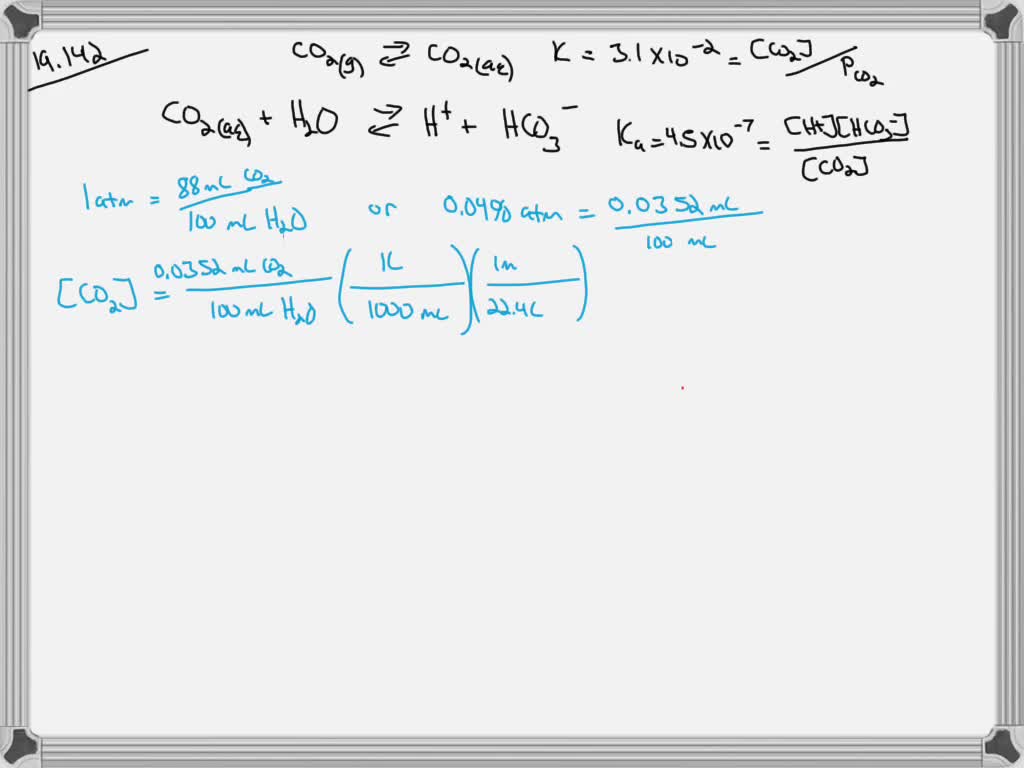 19.142
CO2(g) ⇌ CO2(aq) K = 3.1 x 10^-2 = [CO2] / PCO2
CO2(aq) + H2O ⇌ H+ + HCO3^- Ka = 4.5 x 10^-7 = [H+][HCO3^-] / [CO2]
1 atm = 88 mL CO2 / 100 mL H2O or 0.04% atm = 0.0352 mL / 100 mL
[CO2] = 0.0352 mL CO2 / 100 mL H2O (1L / 1000 mL)(1m / 22.4L)